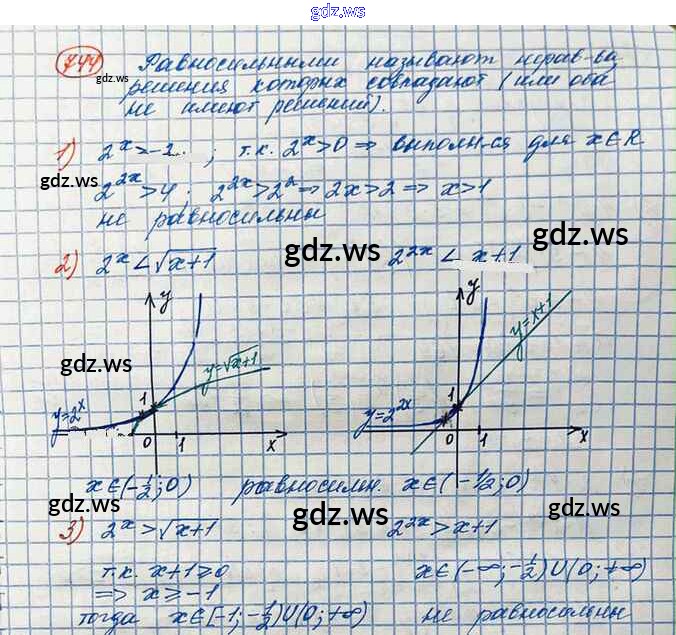 gdz.ws
744 Равносильными называют нерав-ва,
gdz.ws
решения которых совпадают (или оба
не имеют решений).
1) 2^x > -2 ; т.к. 2^x > 0 ⇒ выполн-ся для x∈R
gdz.ws
2^{2x} > 4 ; 2^{2x} > 2^2 ⇒ 2x > 2 ⇒ x > 1
не равносильны
gdz.ws
gdz.ws
2) 2^x < √(x+1) 2^{2x} < x+1
y y
y=√(x+1) y=x+1
gdz.ws
gdz.ws
1 1
y=2^x y=2^{2x}
0 1 x 0 1 x
x∈(-1/2; 0) равносильн. x∈(-1/2; 0)
gdz.ws
gdz.ws
gdz.ws
3) 2^x > √(x+1) 2^{2x} > x+1
т.к. x+1 ≥ 0 x∈(-∞; -1/2)∪(0; +∞)
⇒ x ≥ -1
тогда x∈[-1; -1/2)∪(0; +∞) не равносильны